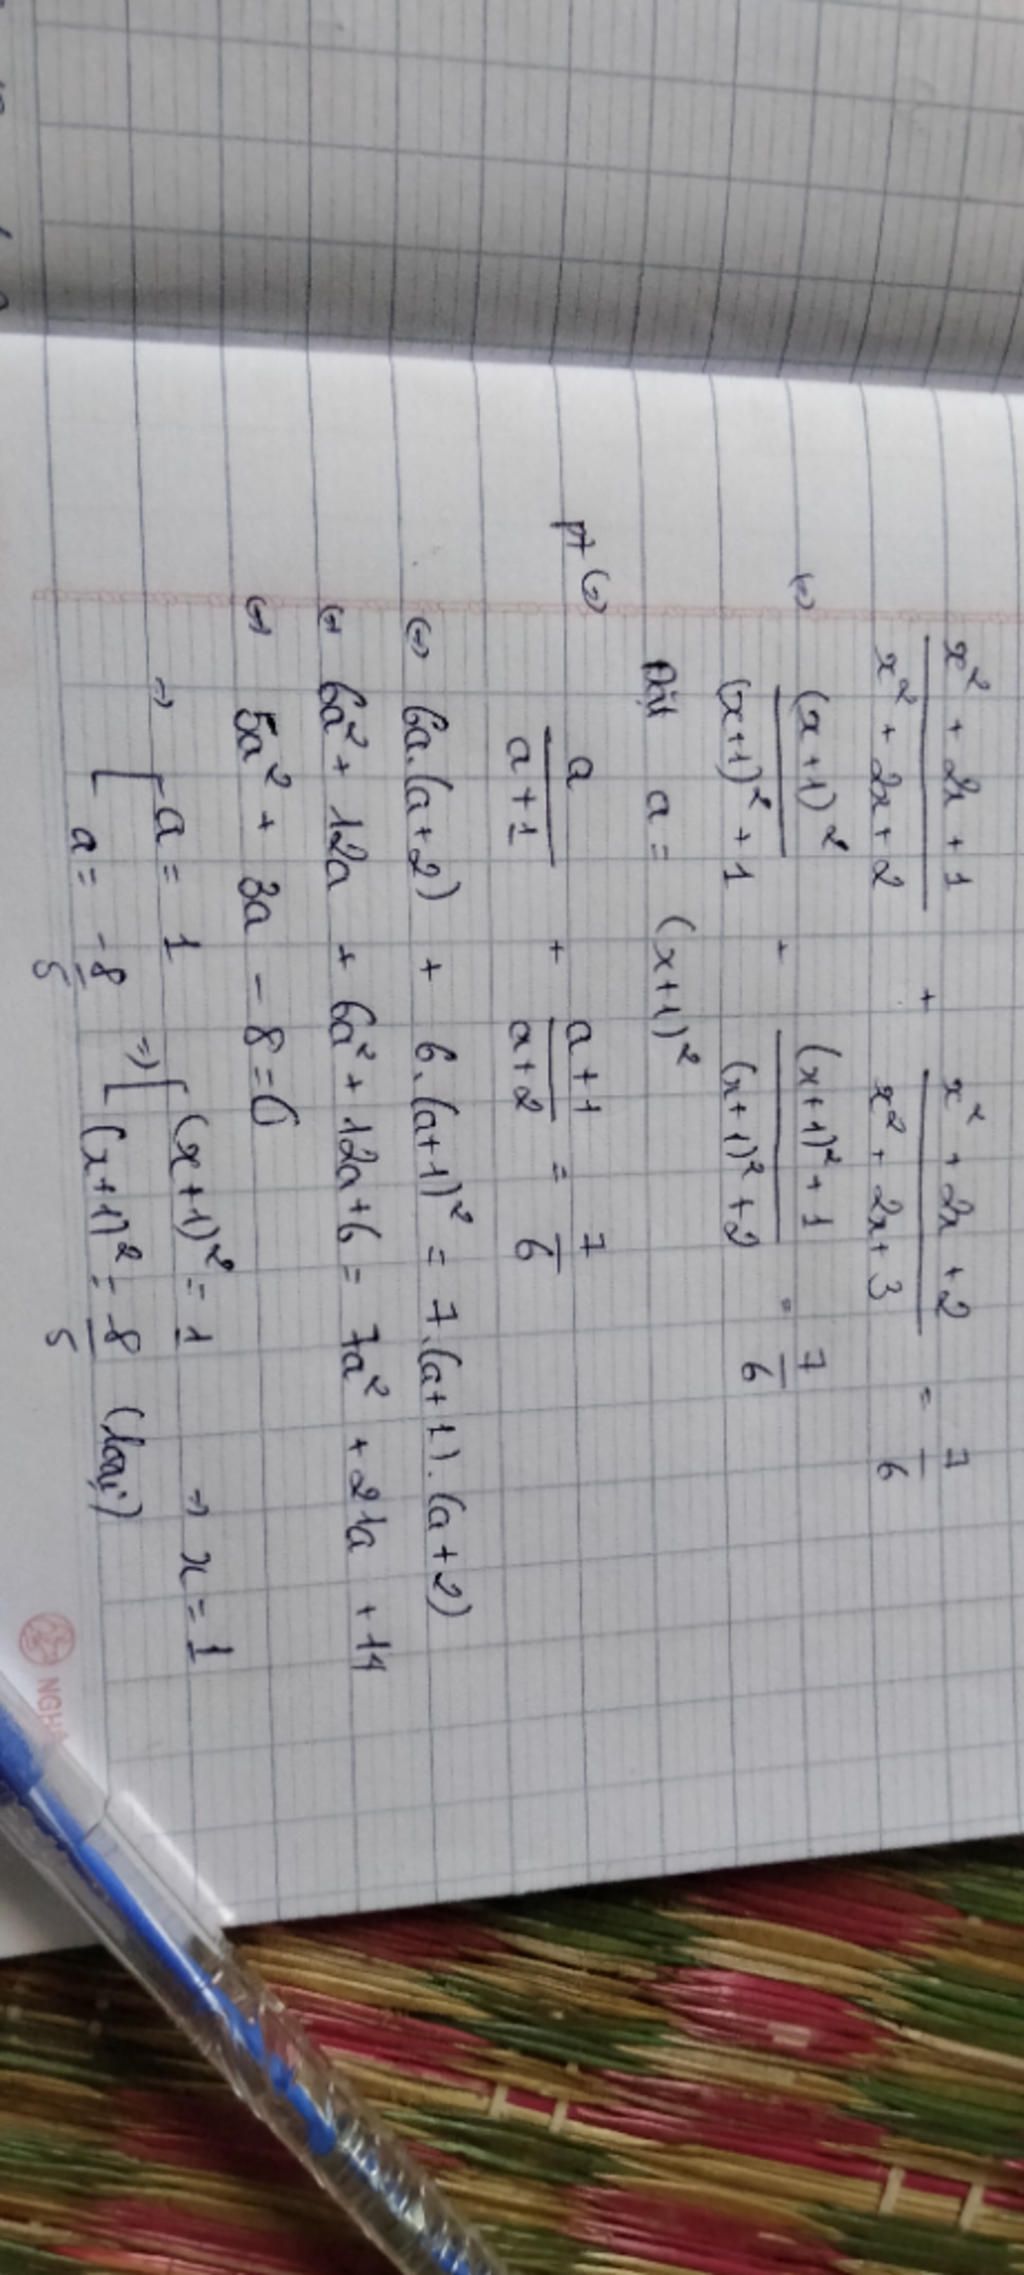 x² + 2x + 1 / x² + 2x + 2 + x² + 2x + 2 / x² + 2x + 3 = 7 / 6
(=) (x+1)² / (x+1)² + 1 + (x+1)² + 1 / (x+1)² + 2 = 7 / 6
Đặt a = (x+1)²
pt (=) a / a+1 + a+1 / a+2 = 7 / 6
(=) 6a.(a+2) + 6.(a+1)² = 7.(a+1).(a+2)
(=) 6a² + 12a + 6a² + 12a + 6 = 7a² + 21a + 14
(=) 5a² + 3a - 8 = 0
=> [ a = 1 => [ (x+1)² = 1 => x = 1
a = -8/5 (x+1)² = -8/5 (loại)
NGH